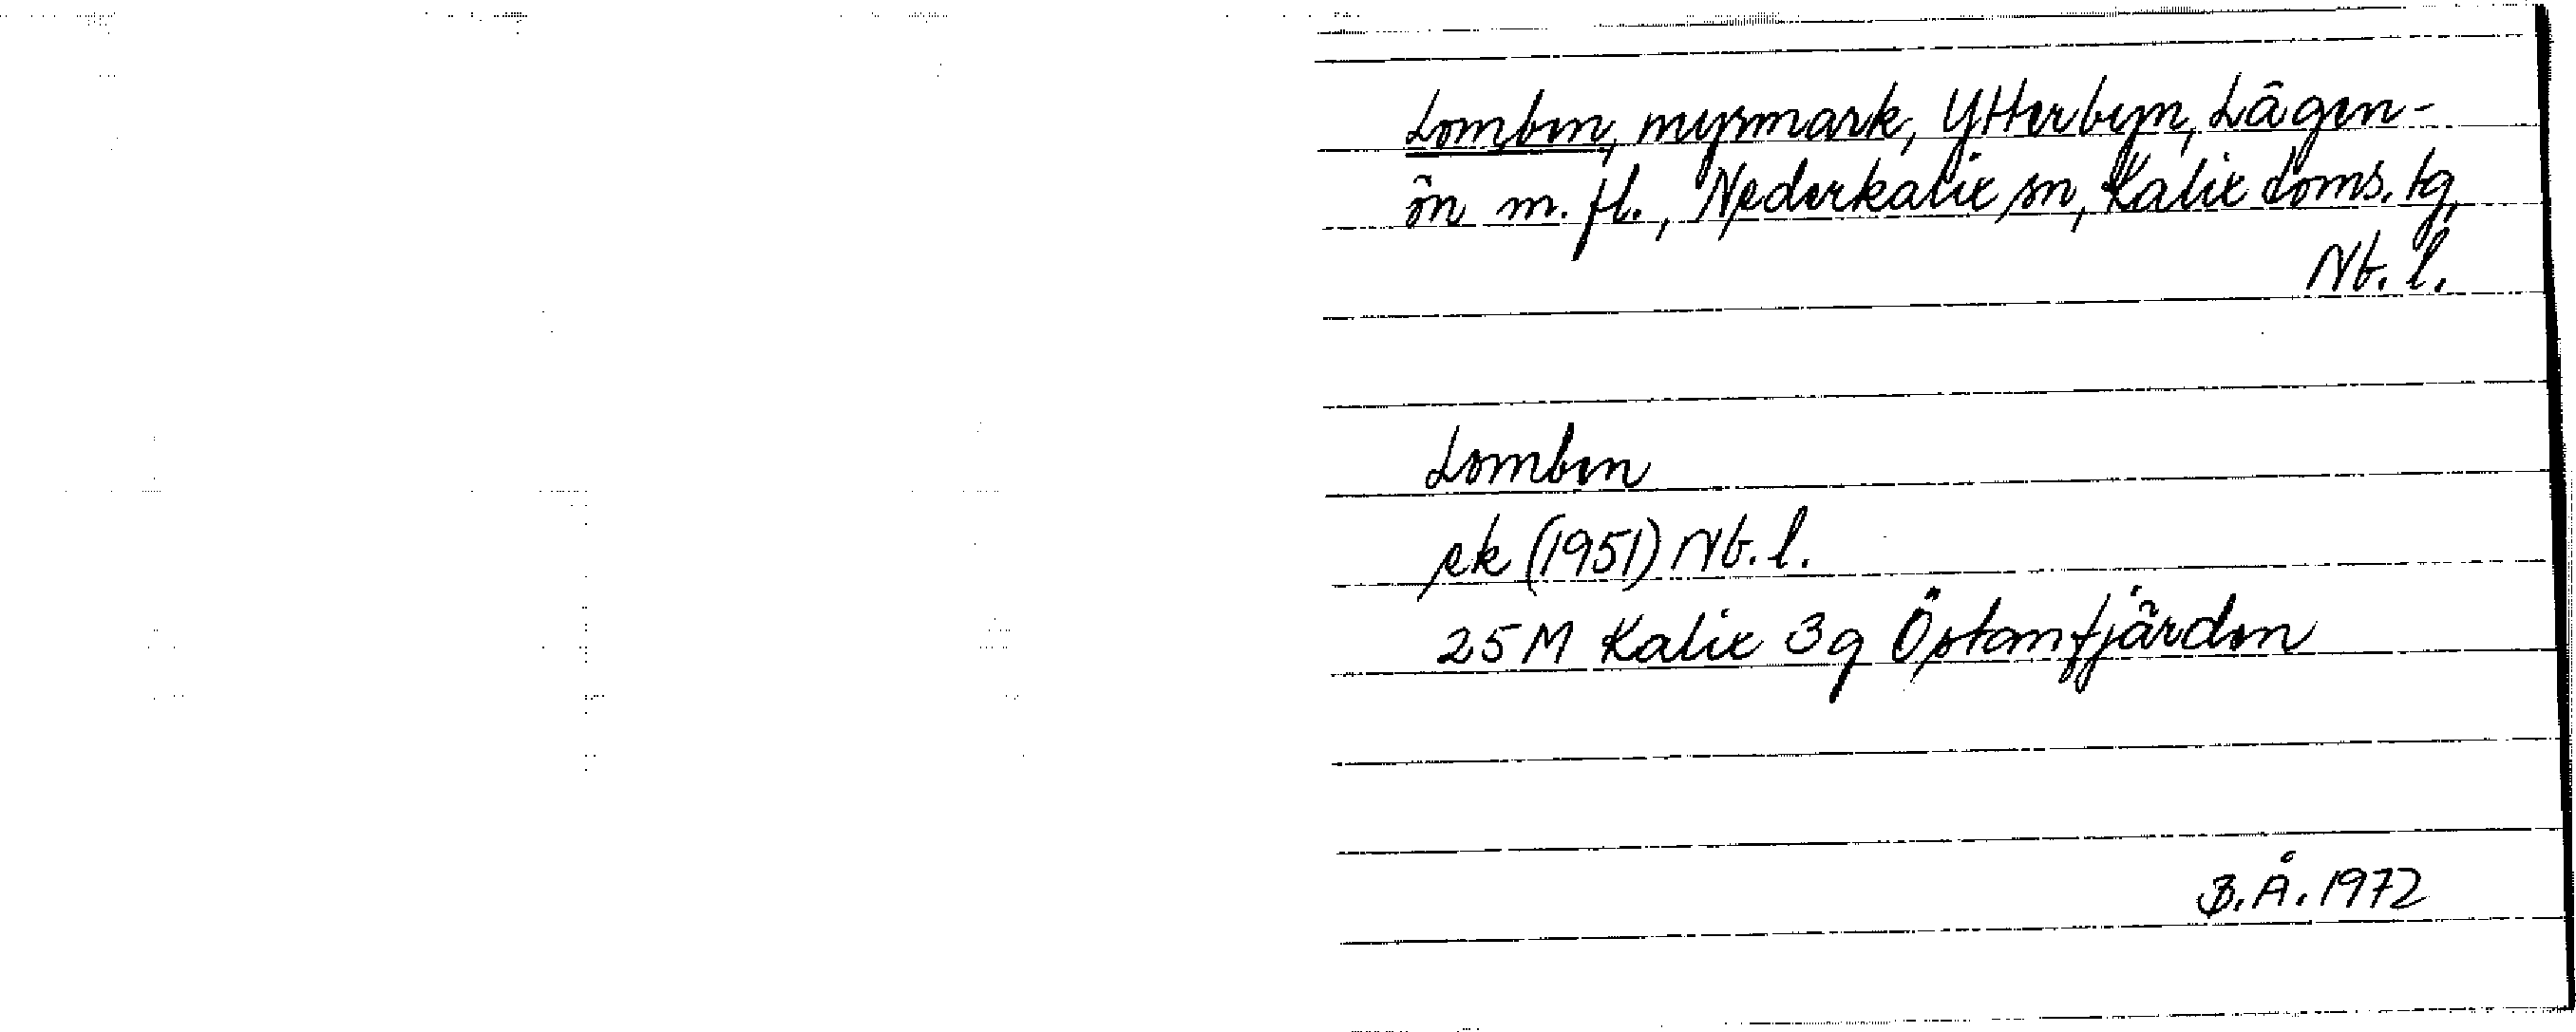 Lomben, myrmark, Ytterbyn, Lågen-
ön m. fl., Nederkalix sn, Kalix doms. tg,
Nb. l.
Lomben
ek (1951) Nb. l.
25 M Kalix 3g Östanfjärden
B.Å. 1972